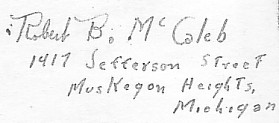 Robert B. McCaleb
1417 Jefferson Street
Muskegon Heights,
Michigan